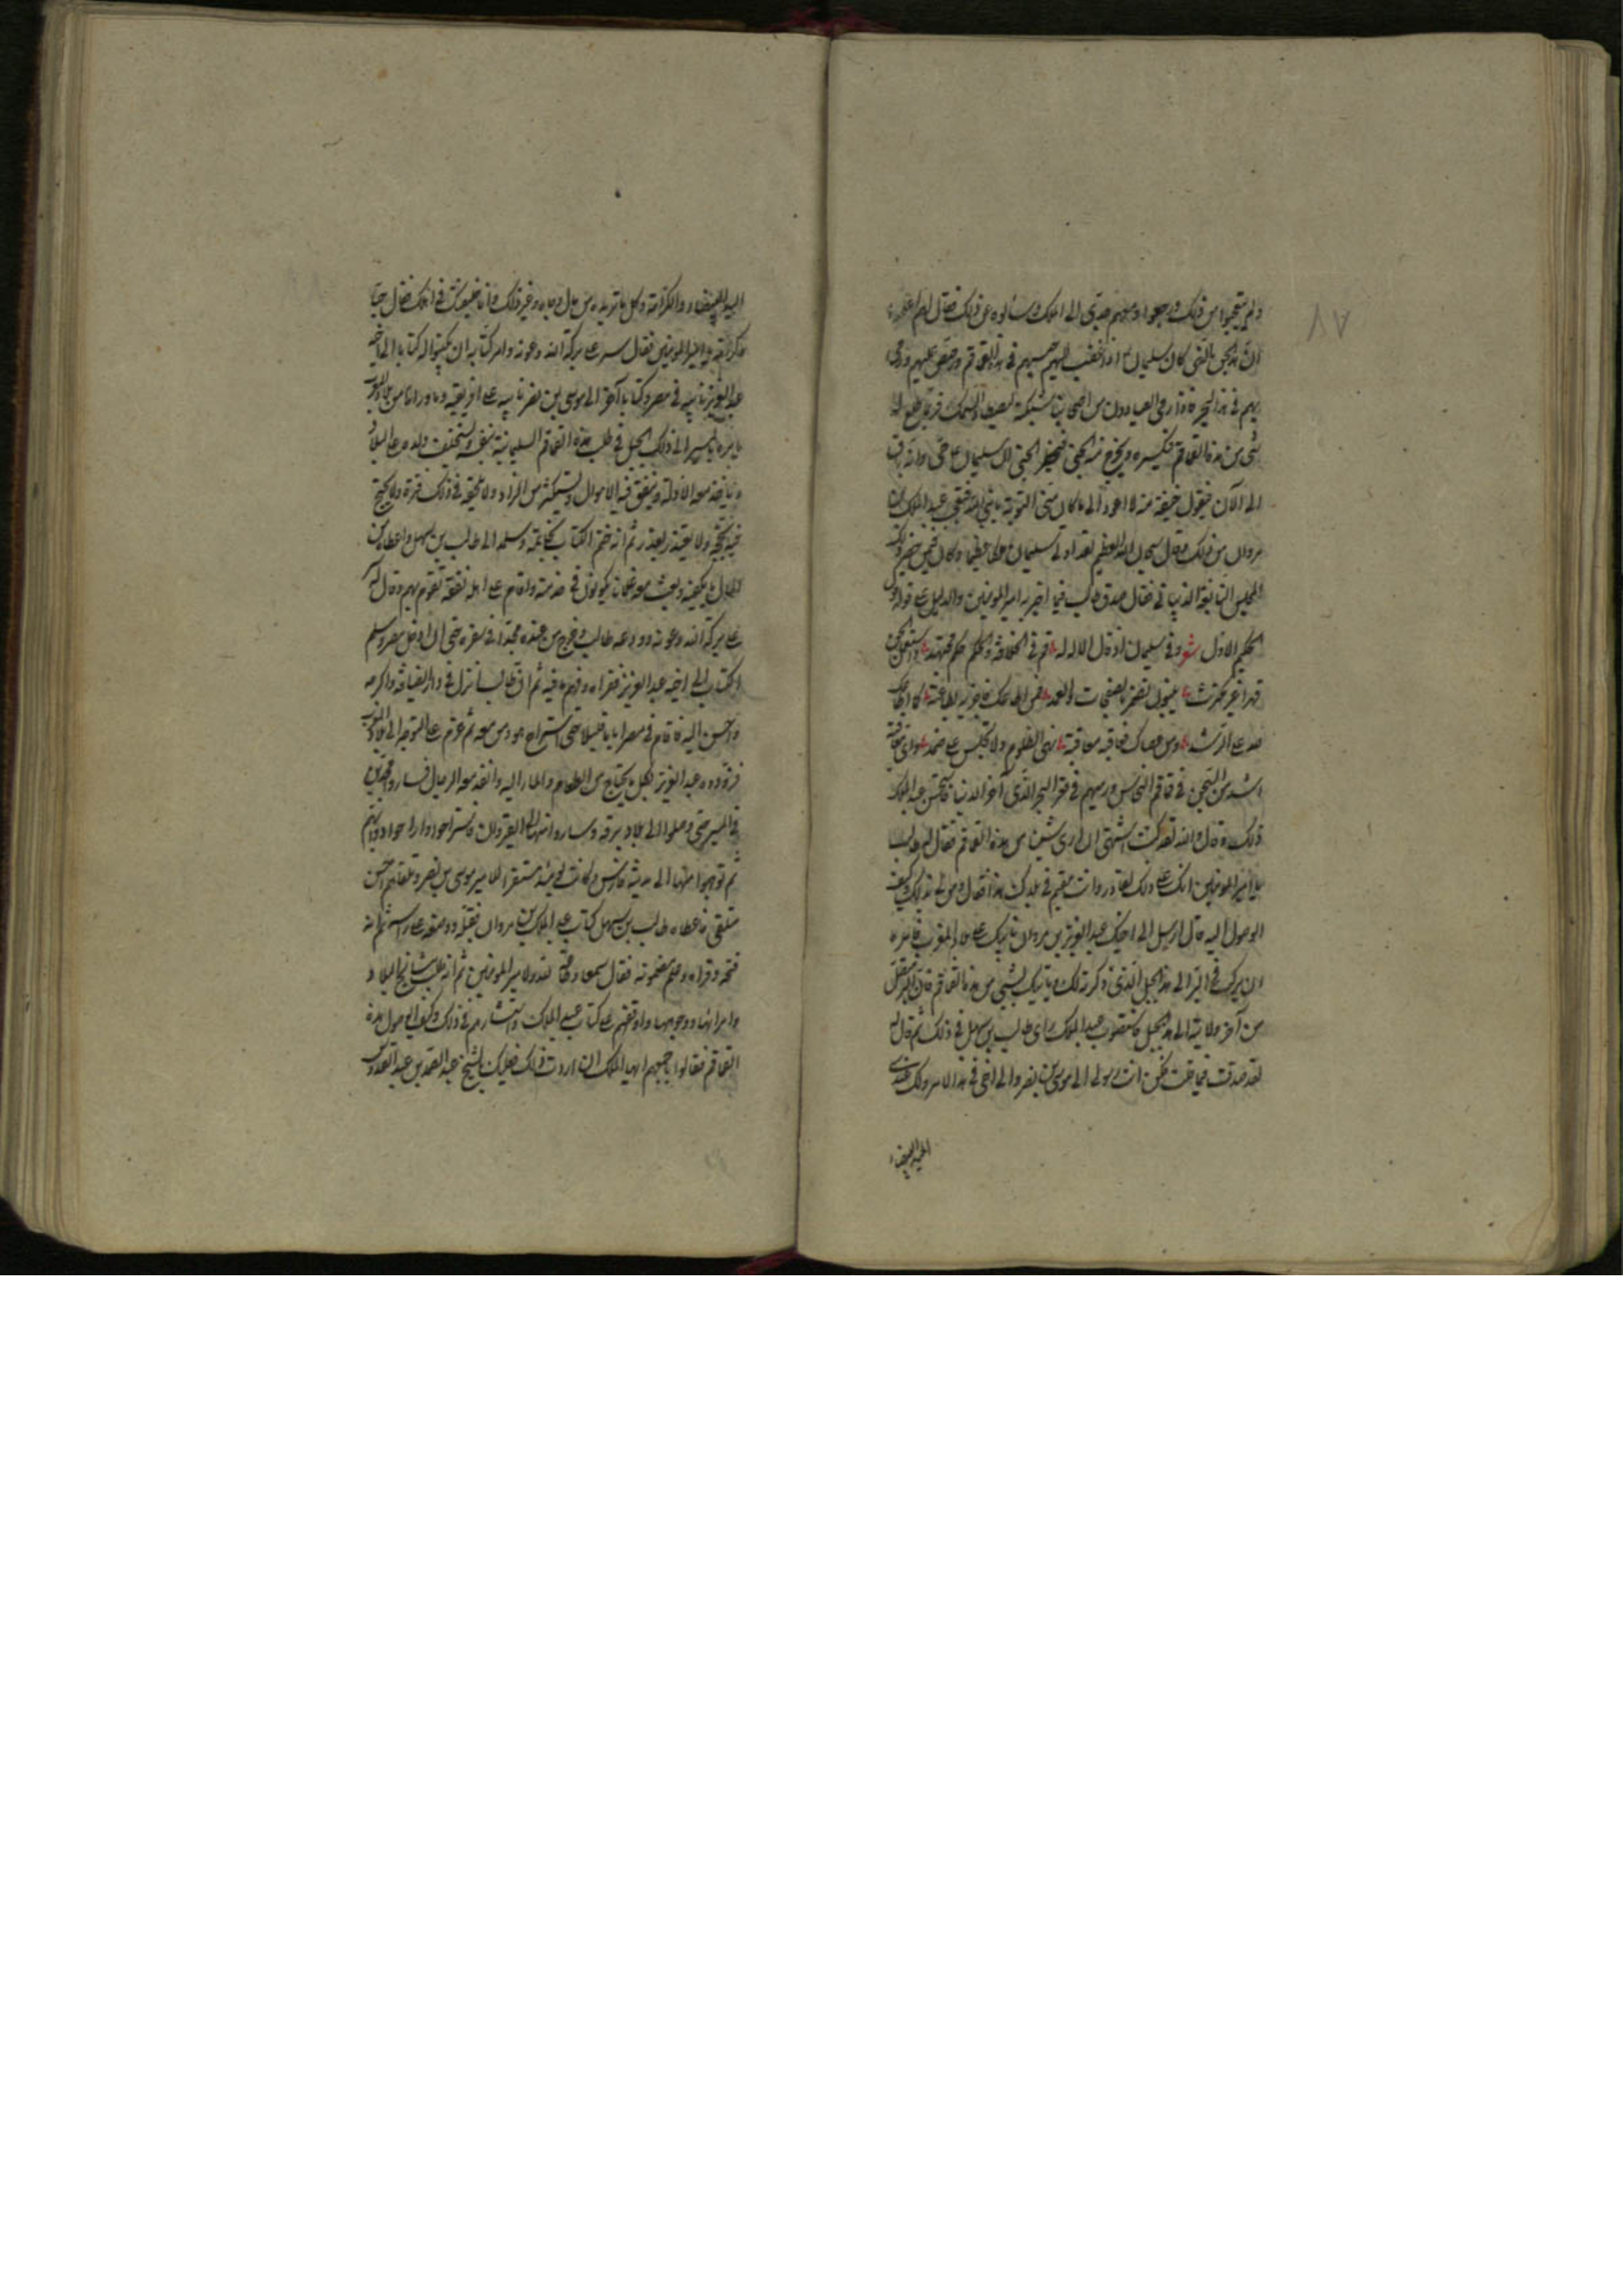 ٨٧
ولم يتعجبوا من ذلك ورجعوا وهم حتى الى الملك وسالوه عن ذلك فقال لهم اعلموا
ان هذا الجن الذى كان سليمان اذا غضب عليهم حبسهم فى هذه القماقم ورصص عليهم ورمى
بهم فى هذا البحر فاذا رمى الصيادون من اصحابنا شبكة لصيد السمك فربما طلع له
شى من هذه القماقم فيكسره ويخرج منه الجنى فيخطر الجنى ان سليمان حى وانه باق
الى الآن فيقول خيفة منه لا اعود الى ما كان منى التوبة يا نبى الله فتعجب عبد الملك بن
مروان من ذلك وقال سبحان الله العظيم لقد اوتى سليمان ملكا عظيما وكان فيمن حضر ذلك
المجلس النابغة الذبيانى فقال صدق طالب فيما اخبر به امير المومنين والدليل على قوله قول
الحكيم الاول شعر وفى سليمان اذ قال الاله له قم فى الخلافة واحكم حكم مجتهد واستعمل الجن
قهرا غير مكترث يبنون تدمر بالصفحات والعمد فمن اطاعك فاجزيه بطاعته كما اطاعك
صدع الرشد ومن عصاك فعاقبه معاقبة تنهى الظلوم ولا تجلس على ضمد سواى معاقبة
اشد من السجن فى قماقم النحاس ورميهم فى قعر البحر الذى آخر الدنيا فاستحسن عبد الملك
ذلك وقال والله لقد كنت اشتهى ان ارى شيئا من هذه القماقم فقال له طالب
يا امير المومنين انك على ذلك لقادر وانت مقيم فى بلدك هذا فقال ومن لى بذلك وكيف
الوصول اليه قال ارسل الى اخيك عبد العزيز بن مروان نايبك على المغرب فامره
ان يركب فى البر الى هذا الجبل الذى ذكرته لك وياتيك بشى من هذه القماقم فان البر متصل
من آخر ولايته الى هذا الجبل فاستصوب عبد الملك راى طالب بن سهل فى ذلك ثم قال له
لقد صدقت فيما قلت لكن انت رسولى الى موسى بن نصر والى اخى فى هذا الامر ولك عندى
اليد البيضاء
اليد البيضاء والكرامة وكل ما تريده من مال وجاه وغير ذلك وانا خليفتك فى اهلك فقال حبا
وكرامة يا امير المومنين فقال سر على بركة الله وعونه وامر كتابه ان يكتبوا له كتابا الى اخيه
عبد العزيز نايبه فى مصر وكتابا آخر الى موسى بن نصر نايبه على افريقية وما وراها من بلاد المغرب
يامره بالمسير الى ذلك الجبل فى طلب هذه القماقم السليمانية بنفسه ويستخلف ولده على البلاد
وياخذ معه الادلة وينفق فيه الاموال ويستكثر من الزاد ولا يلحقه فى ذلك فترة ولا يحتج
فيه بحجة ولا يعتذر بعذر ثم انه ختم الكتاب بخاتمه وسلمه الى طالب بن سهل واعطاه من
المال ما يكفيه وبعث معه غلمانا يكونون فى خدمته واقام على اهله نفقة تقوم بهم وقال له
سر على بركة الله وعونه وودعه طالب وخرج من عنده مجدا فى سفره حتى ان دخل مصر وسلم
الكتاب الى اخيه عبد العزيز فقراه وفهم ما فيه ثم ان طالبا نزل فى دار الضيافة واكرمه
واحسن اليه فاقام فى مصر اياما قليلا حتى استراح هو ومن معه ثم عزم على التوجه الى بلاد المغرب
فزوده عبد العزيز بكل ما يحتاج من الطعام والماء اليه وانفذ معه الرجال فساروا مجدين
فى المسير حتى وصلوا الى بلاد برقة وساروا منها الى القيروان فاستراحوا واراحوا دوابهم
ثم توجهوا منها الى مدينة فارس وكانت يوميذ مستقر الامير موسى بن نصر وتلقاهم احسن
متلقى فاعطاه طالب بن سهل كتاب عبد الملك بن مروان فقبله ووضعه على راسه ثم انه
فتحه وقراه وفهم مضمونه فقال سمعا وطاعة لله ولامير المومنين ثم انه طلب مشايخ البلاد
وامرايها ووجوهها واوقفهم على كتاب عبد الملك واستشارهم فى ذلك وكيف الوصول لهذه
القماقم فقالوا جميعهم ايها الملك ان اردت ذلك فعليك بالشيخ عبد الصمد بن عبد القدوس